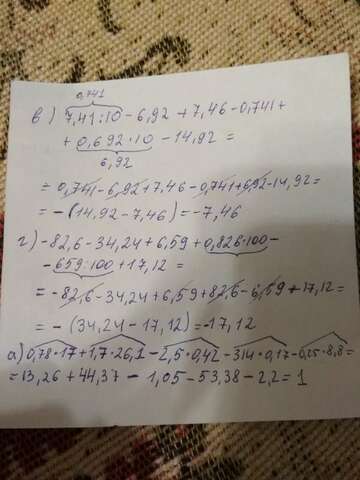 0,741
в) 7,41:10-6,92+7,46-0,741+
+0,692·10-14,92=
6,92
=0,741-6,92+7,46-0,741+6,92-14,92=
=-(14,92-7,46)=-7,46
г)-82,6-34,24+6,59+0,826·100-
-659:100+17,12=
=-82,6-34,24+6,59+82,6-6,59+17,12=
=-(34,24-17,12)=-17,12
а)0,78·17+1,7·26,1-2,5·0,42-314·0,17-0,25·8,8=
=13,26+44,37-1,05-53,38-2,2=1